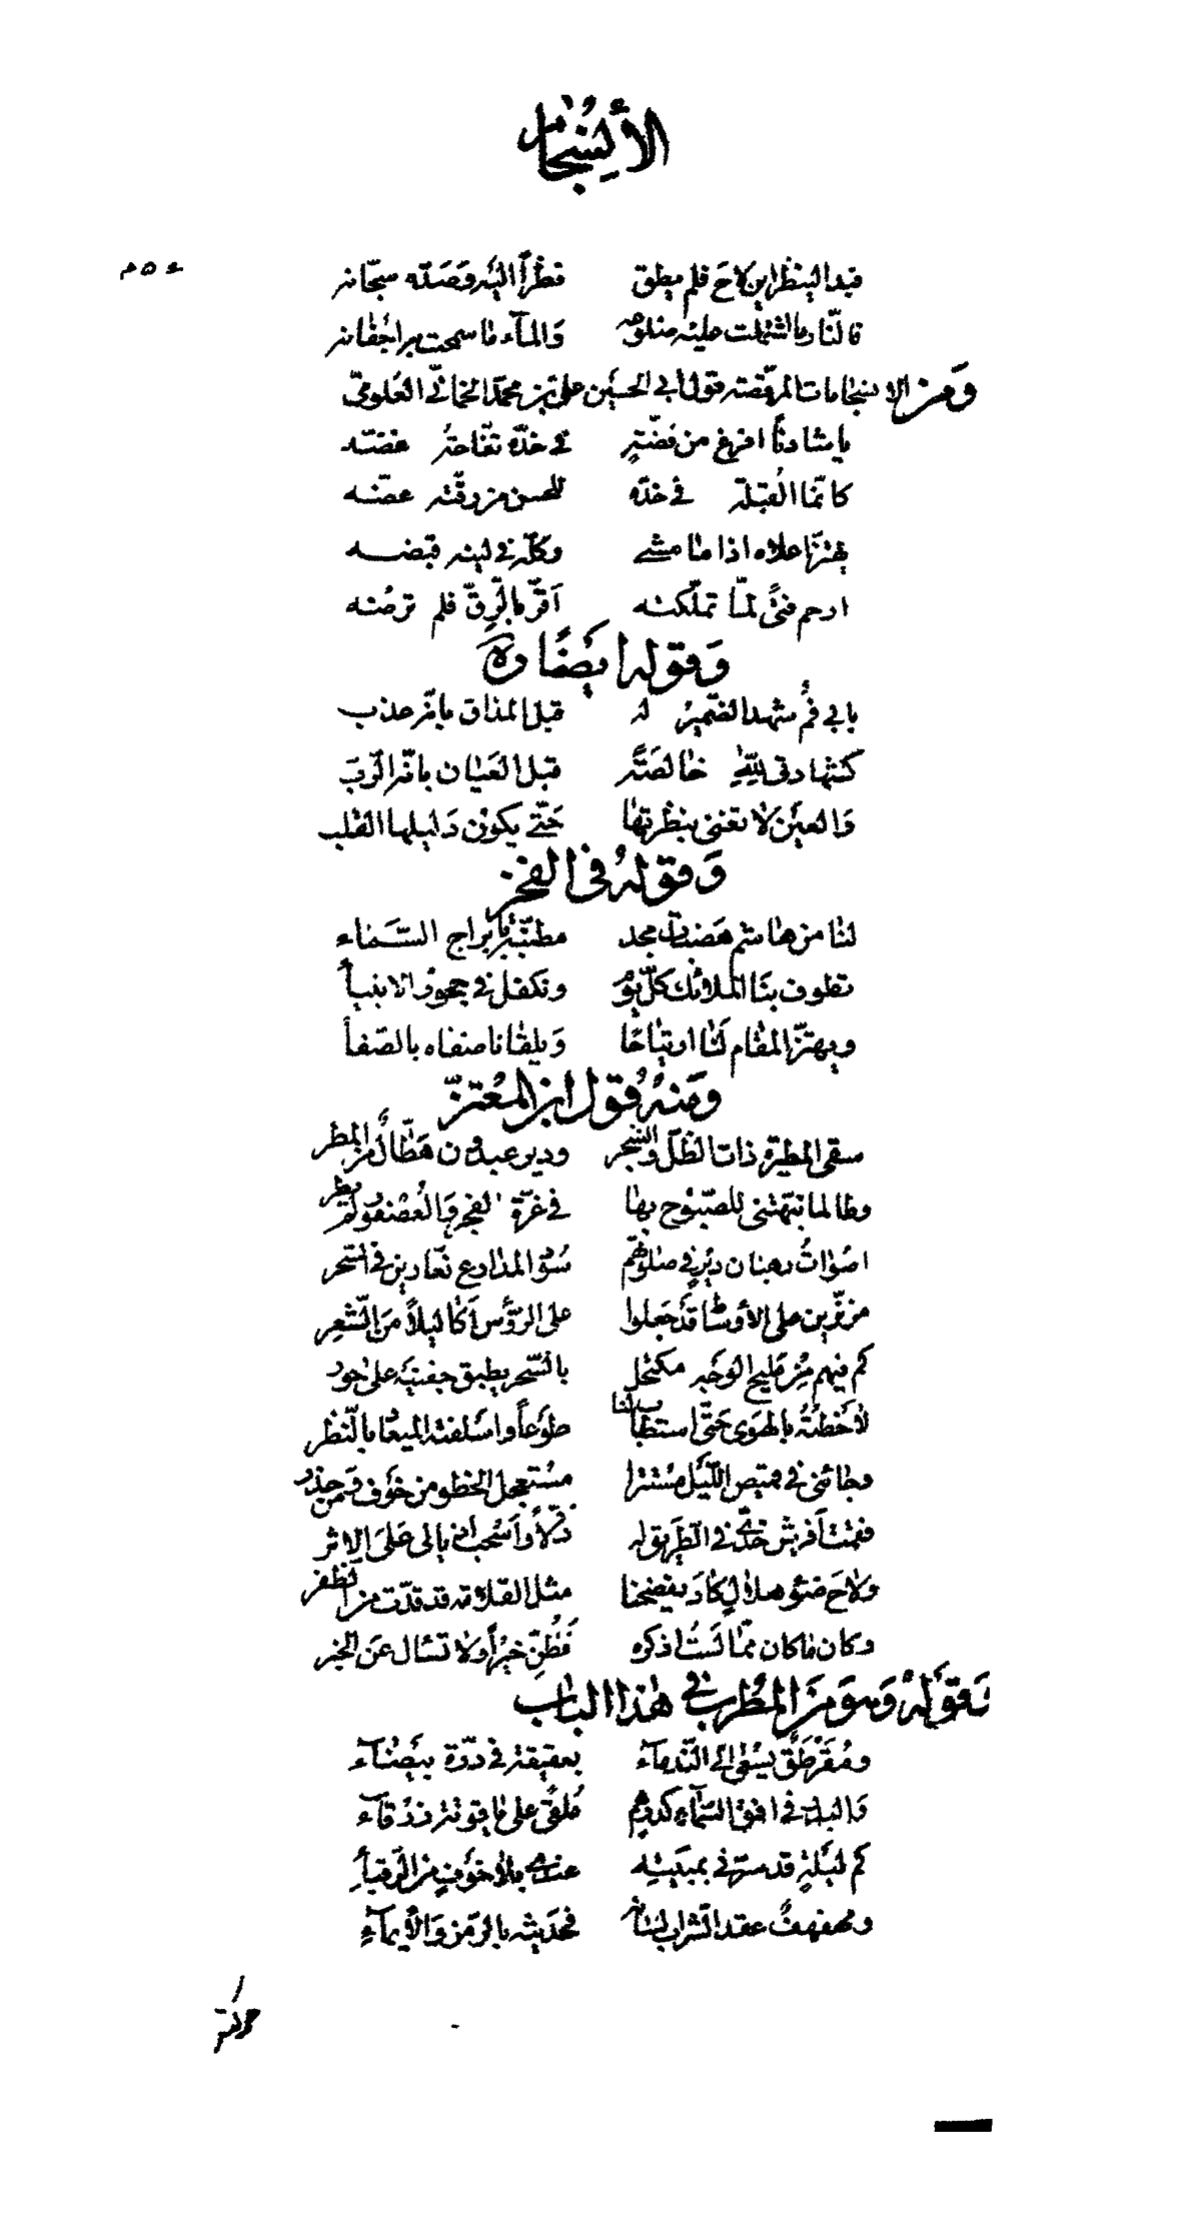 الأنسجام
٤٥٣
فبدا لينظر اين لاح فلم يطق نظراً اليه وصدّه سجّانه
فالنّار ما اشتملت عليه ضلوعه وَالمآء ما سمحت به اجفانه
وَمن الانسجامات المرقّصة قول أبي الحسين علي بن محمّد الحمّاني العَلويّ
يا شادناً افرغ من فضّةٍ في خدّه تفّاحةٌ غضّه
كانّما القُبلة في خدّه للحسن من رقّته عضّه
يهتزّ اعلاه اذا ما مشى وكلّه في لينه قبضه
ارحم فتىً لمّا تملّكته اَقرّ بالرّقّ فلم ترضه
وَقوله ايضًا
بابي فمٌ شهد الضّميرُ له قبل المذاق بانّه عذب
كشهادتي للّٰهِ خالصَةً قبل العَيان بانّه الرّبّ
وَالعين لا تغنى بنظرتها حَتّى يكون دَليلها القلب
وَقولهُ في الفخر
لنا من هاشم هَضبات مجد مطنّبة بأبراج السّماء
تطوف بنا الملائك كلّ يوم ونكفل في حجور الانبيا
ويهتزّ المقام لنا ارتياحًا وَيلقانا صفاه بالصّفا
ومنهُ قول ابن المعتزّ
سقى المطيرة ذات الظّلّ والشجر ودير عبدون هَطّالٌ من المطر
وطالما نبّهتني للصّبوح بها في غرّة الفجر وَالعُصفور لم يطر
اصْواتُ رهبان ديْرٍ في صلوتهم سُود المدارع نعّارين في السّحر
مزنّرين على الأوساط قد جَعلوا على الرّؤس اَكاليلاً من الشّعر
كم فيهم من مَليح الوجه مكتحل بالسّحر يطبق جفنيه على حور
لاحَظتُهُ بالهوى حَتّى استطاب لنا طوعاً واسلفني الميعاد بالنّظر
وجائني في قميص اللّيل مستترا مستعجل الخطو من خوف ومن حذر
فقمت اَفرش خدّي في الطّريق له ذلّاً وَاَسْحب اذيالي عَلى الاثر
ولاح ضوء هلالٍ كادَ يفضحنا مثل القلامة قد قدّت من الظّفر
وكان ما كان ممّا لَستُ اذكره فَظُنّ خيراً ولا تسال عن الخبر
وَقولهُ وَهو من المُطرب في هٰذا الباب
ومُقَرْطَق يسْعى الى النّدمآء بعقيقة في درّة بيضآء
وَالبدر في افق السّمآء كدرهم مُلقىً على ياقوتة زرقآء
كم ليلةٍ قد سرّني بمبيتِه عندي بلا خوفٍ من الرّقبآ
ومهفهفٌ عقد الشّراب لسانه فحديثه بالرّمز وَالأيمآءِ
حركته